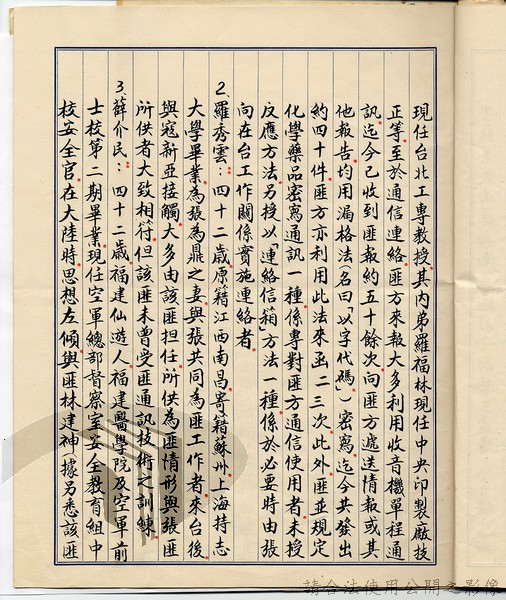 現任台北工專教授其內弟羅福林現任中央印製廠技
正等至於通信連絡匪方來報大多利用收音機單程通
訊迄今已收到匪報約五十餘次向匪方遞送情報或其
他報告均用漏格法(名曰「以字代碼」)密寫迄今共發出
約四十件匪方亦利用此法來函二三次此外匪並規定
化學藥品密寫通訊一種係專對匪方通信使用者未授
反應方法另授以「連絡信箱」方法一種係於必要時由張
向在台工作關係實施連絡者
2、羅秀雲：四十二歲原籍江西南昌寄籍蘇州上海持志
大學畢業為張為鼎之妻與張共同為匪工作者來台後
與寇新亞接觸大多由該匪担任所供為匪情形與張匪
所供者大致相符但該匪未曾受匪通訊技術之訓練
3、薛介民：四十二歲福建仙遊人福建醫學院及空軍前
士校第二期畢業現任空軍總部督察室安全教育組中
校安全官在大陸時思想左傾與匪林建神(據另悉該匪
請合法使用公開之影像